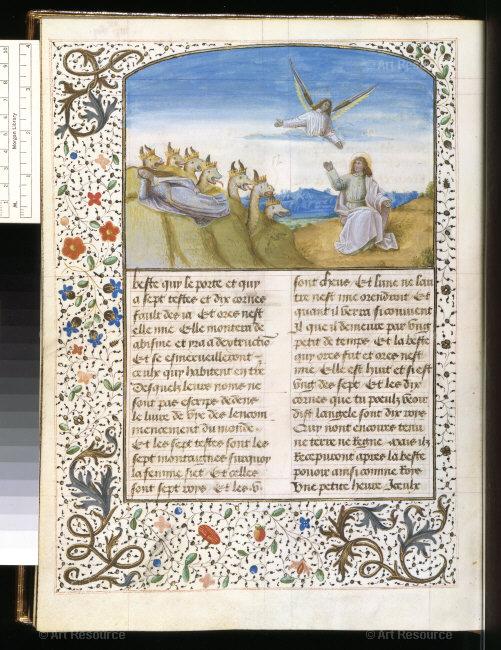 © Art Resource
Morgan Library
beste quy le porte et quy
a sept testes et dix cornes
Et ores nest
elle mie Elle montera de
abisme et ira a destructio
Et se esmerveilleront
ceulx quy habitent en tre
Desquelz leurs noms ne
sont pas escrips dedens
le livre de vye des lencom
mencement du monde
Et les sept testes sont les
sept montaignes sur quoy
la femme siet Et celles
sont sept roys Et les v
sont cheus Et lune ne lau
tre nest mie orendroit Et
quant il verra si convient
Il que il demeure par ung
petit de temps Et la beste
quy ores fut et ores nest
mie Elle est huit et si est
ung des sept Et les dix
cornes que tu veoir
dist langele sont dix roys
Quy nont encoure tenu
ne terre ne Regne Mais ilz
Receveront apres la beste
povoir ainsi comme Roys
Une petite heure Iceulx
© Art Resource
© Art Resource